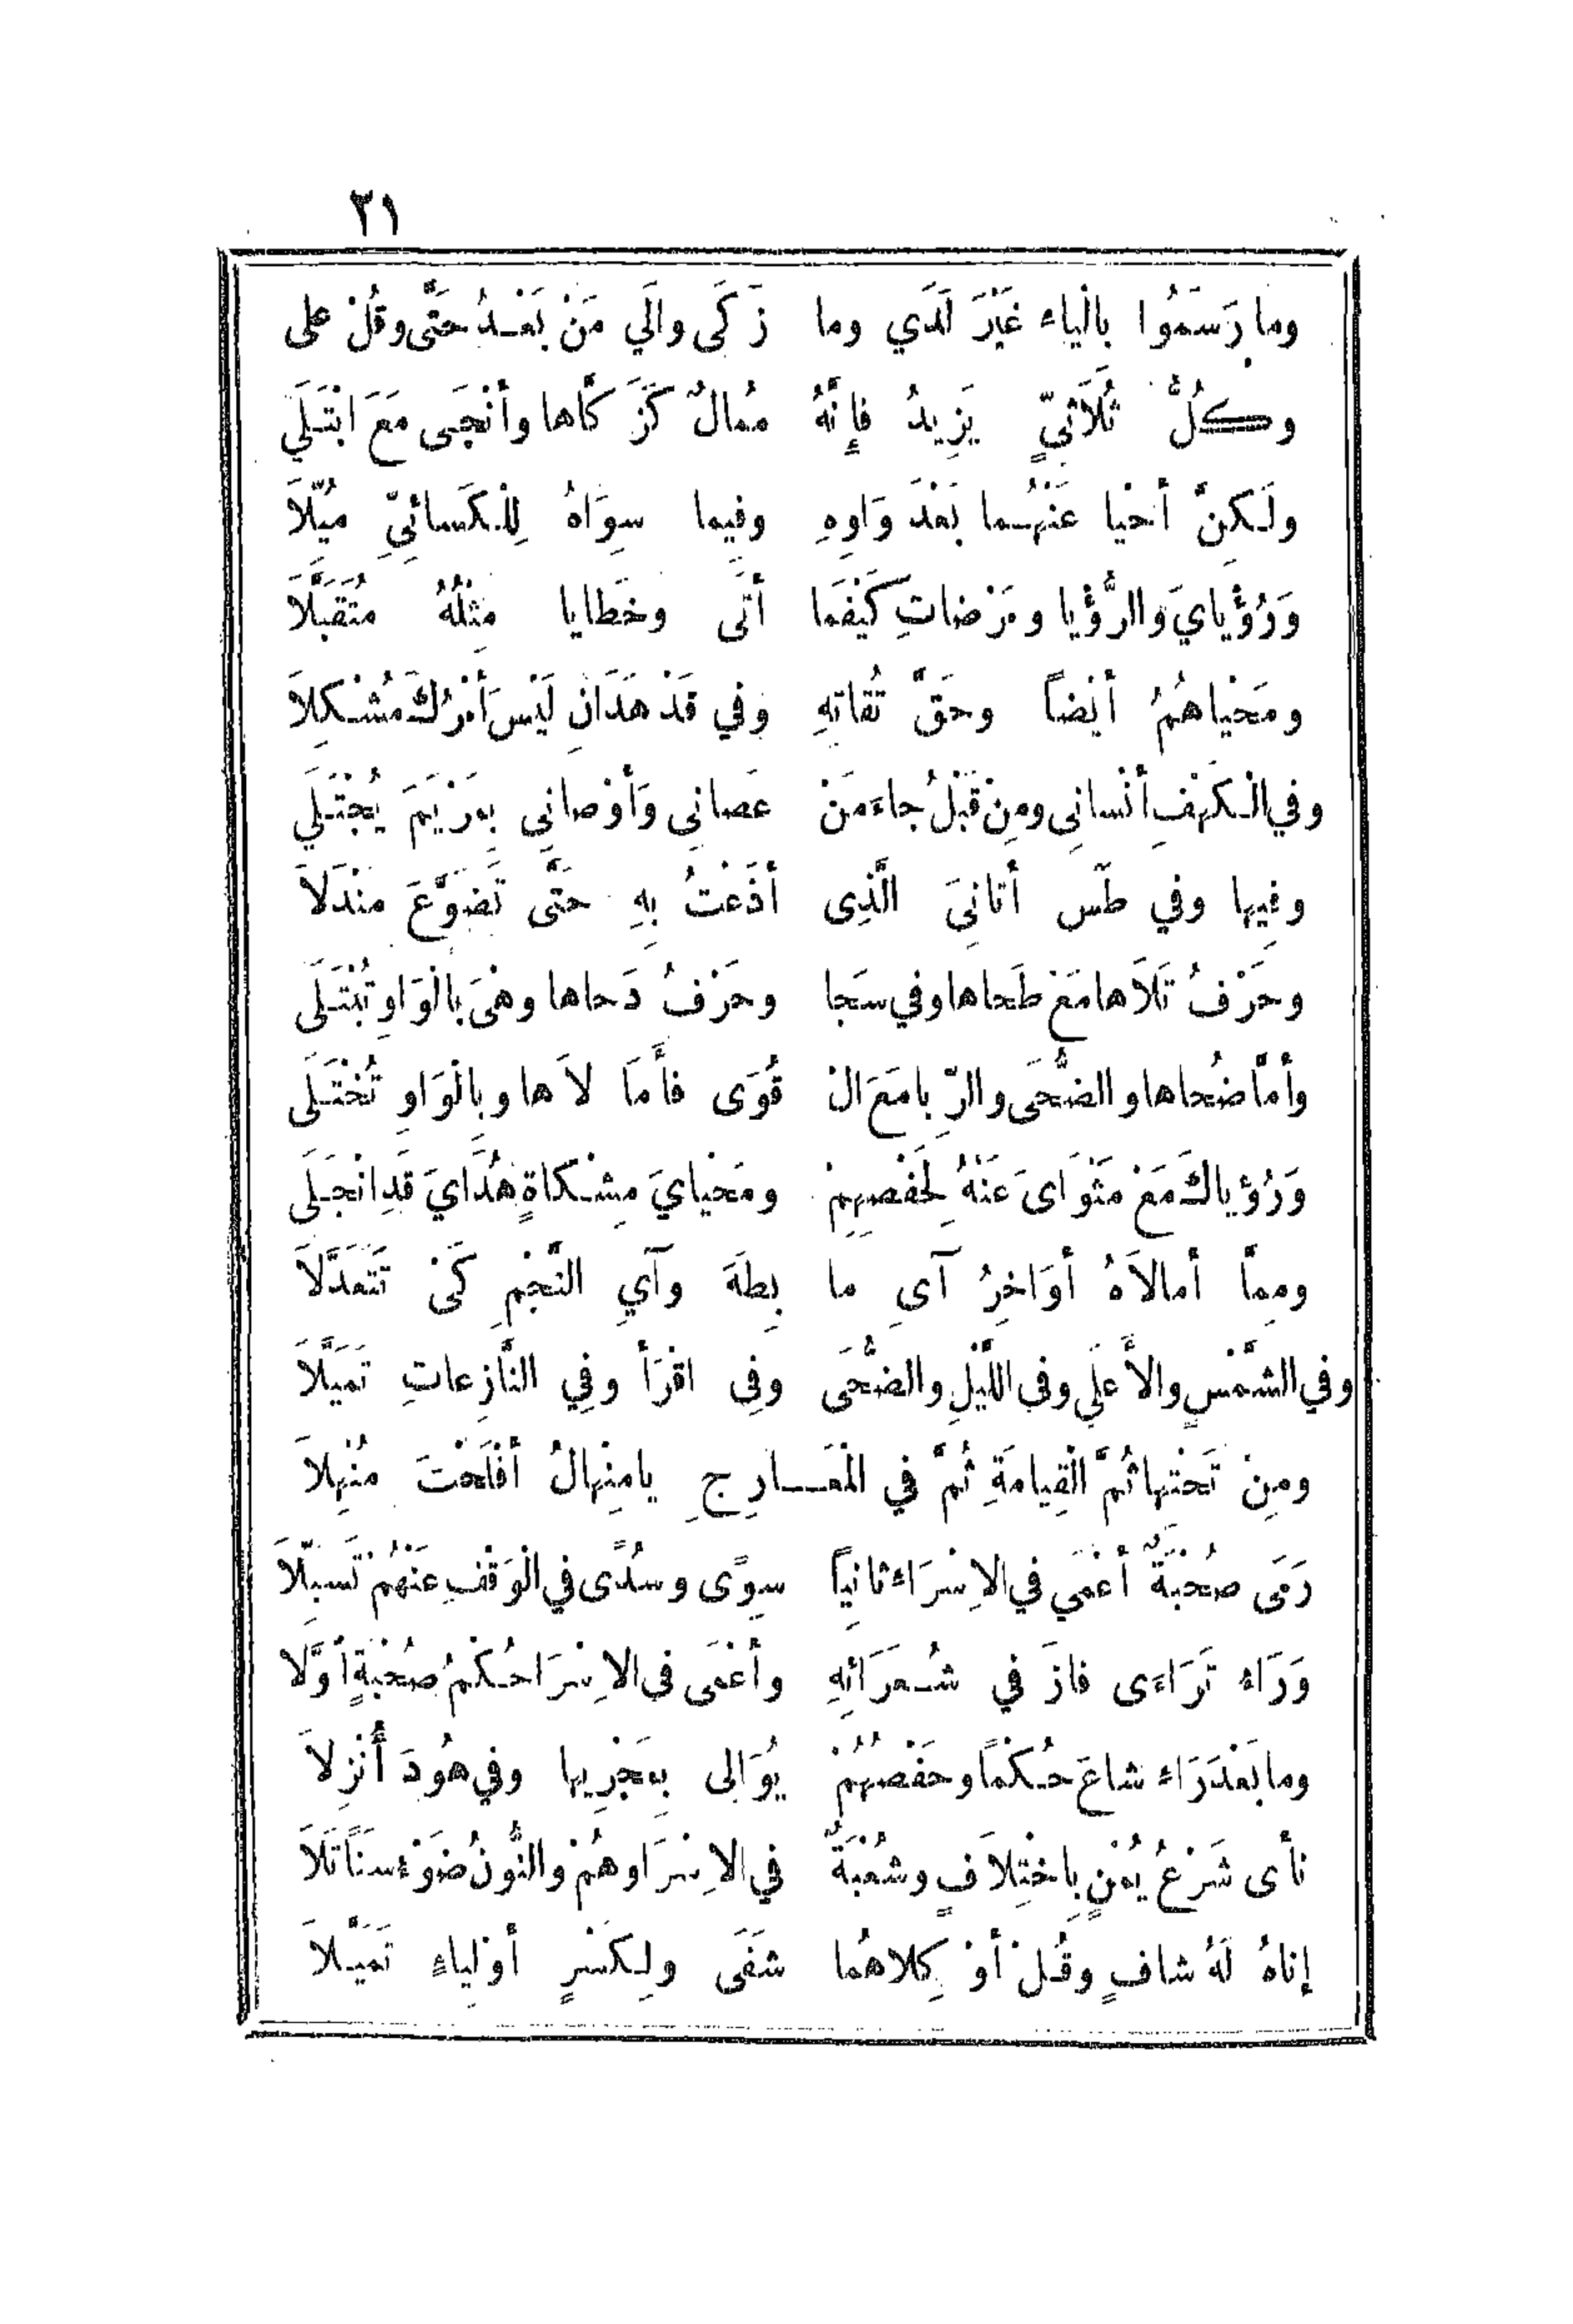 ٣١
وما رَسَمُوا بالْياء غَيْرَ لَدَي وما زَكَى وإلَي مَنْ بَعْدُ حَتَّى وقُلْ على
وكُلُّ ثُلَاثيٍّ يَزِيدُ فإِنَّهُ مُمالٌ كَزَكَّاها وأنْجَى مَعَ ابْتَلَي
ولَكِنَّ أحْيا عَنْهُما بَعْدَ وَاوِهِ وفيما سِوَاهُ لِلْكَسائيِّ مُيِّلَا
وَرُؤْيايَ والرُّؤْيا ومَرْضاتِ كَيْفَما أتَى وخَطايا مِثْلُهُ مُتَقَبَّلَا
ومَحْياهُمُ أيْضاً وحَقَّ تُقاتِهِ وفي قَدْ هَدَانِ لَيْسَ أمْرُكَ مُشْكِلاَ
وفي الْكَهْفِ أنْسانِى ومِنْ قَبْلُ جاءَ مَنْ عَصانِى وَأوْصانِى بِمَرْيَمَ يُجْتَلَي
وفِيها وفي طَسَ أتانِيَ الَّذِى أذَعْتُ بِهِ حَتَّى تَضَوَّعَ مَنْدَلاَ
وحَرْفُ تَلاَها مَعْ طَحاها وفي سَجا وحَرْفُ دَحاها وهْىَ بالْوَاوِ تُبْتَلَى
وأمَّا ضُحاها والضُّحَى والرِّبا مَعَ الْ قُوَى فأَمَا لاَها وبالْوَاوِ تُخْتَلَى
وَرُؤياكَ مَعْ مَثْوَاىَ عَنْهُ لِحَفْصِهِمْ ومَحْيايَ مِشْكاةٍ هُدَايَ قَدِ انْجَلَى
ومِمَّا أمالاَهُ أوَاخِرُ آىِ ما بِطَهَ وآيِ النَّجْمِ كَىْ تَتَعَدَّلاَ
وفي الشَّمْسِ والأَعلَي وفي اللَّيْلِ والضُّحَى وفِى اقْرَأ وفِي النَّازِعاتِ تَمَيَّلاَ
ومِنْ تَحْتِها ثُمَّ الْقِيامَةِ ثُمَّ في الْمَعَارِجِ يامِنْهالُ أفْلَحْتَ مُنْهِلاَ
رَمَى صُحْبَةٌ أعْمَي في الاِسْرَاء ثانِياً سِوًى وسُدًى في الْوَقْفِ عَنْهُمْ تَسَبَّلاَ
وَرَاء تَرَاءَى فازَ في شُعَرَائِهِ وأعْمَى فى الاِسْرَا حُكْمُ صُحْبَةٍ أوَّلَا
وما بَعْدَ رَاء شاعَ حُكْماً وحَفْصُهُمْ يُوَالِى بِمَجْرِيها وفي هُودَ أُنْزِلاَ
نأى شَرْعُ يُمْنٍ باِخْتِلاَفٍ وشُعْبَةٌ في الاِسْرَا وهُمْ والنُّونُ ضَوْءُ سَناً تَلاَ
إناهُ لَهُ شافٍ وَقُلْ أوْ كِلاهُما شَفَى ولِكَسْرٍ أوْ لِياءٍ تَمَيَّلاَ